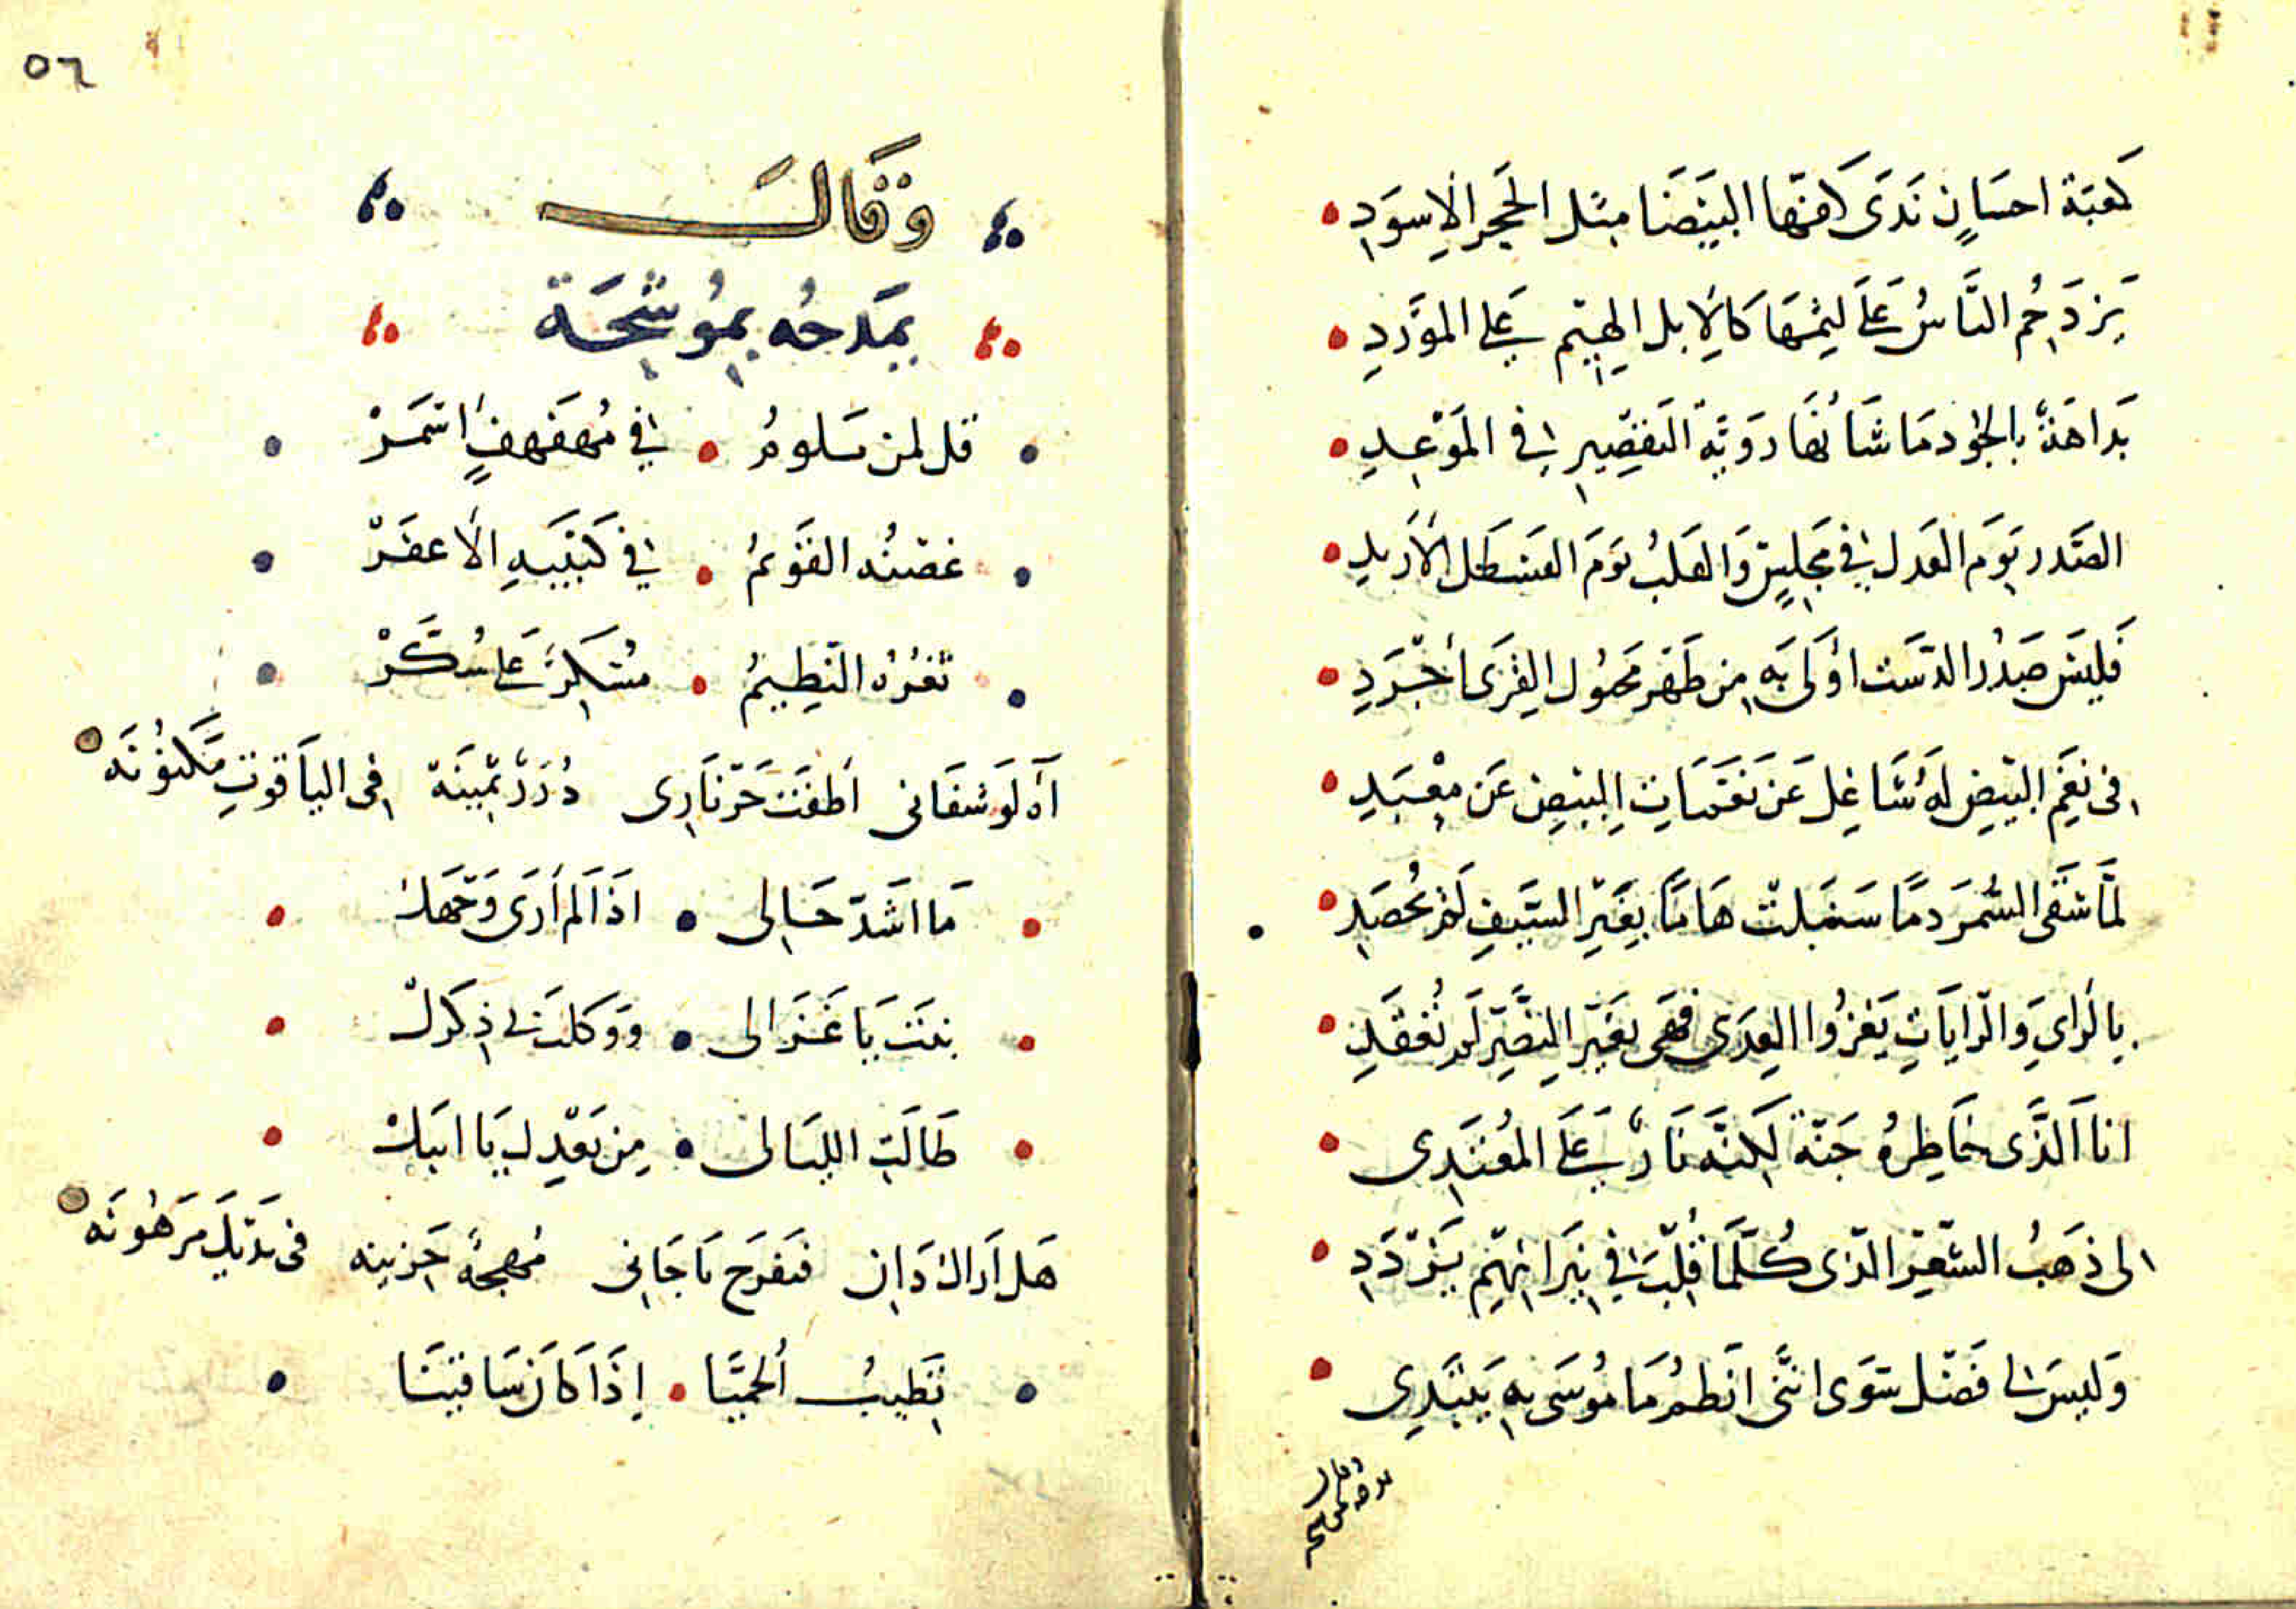 كعبة احسانٍ نَدَى كفّها البيضا مثل الحجر الاسودِ
يزدحم النّاسُ عَلَى لثمها كالابل الهيم على الموردِ
بداهةٌ بالجود ما شأنها رويّة التقصير في الموعدِ
الصّدر يوم العدل في مجلسٍ والقلبُ يوم القسطل الأربدِ
فليس صدرُ الدّست اولى به من ظهر محمول القرى أجردِ
في نغم البيض له شاغل عن نغمات البيض عن معبدِ
لمّا سقى السّمر دمًا سنبلت هامًا بغير السّيف لم تحصدِ
بالرأي والرّايات يغزوا العدى فهي بغير النّصر لم تعقدِ
انا الّذي خاطره جنّة لكنّه نارٌ على المعتدي
الى ذهبُ الشّعر الّذي كلّما قلّبت في نيرانهم يزددِ
وليس لي فضل سوى انّني انظم ما موسى به يبتدي
٥٦
وقال
يمدحُه بموشّحة
قل لمن يلومُ في مهفهفٍ اسمرْ
غصنُه القويمُ في كثيبه الاعفرْ
ثغرُهُ النّظيمُ مسكرٌ على سكّرْ
آه لو شفاني اطفت حرّ ناري دُررٌ ثمينة في الياقوتِ مكنونَه
ما اشدّ حالي اذا لم أرى وجهكْ
بنت يا غزالي ووكلتَ لي ذكركْ
طالت الليالى من بعدك يا ابيكْ
هل اراك دان فتفرح يا جاني مهجةً حزينه في يديك مرهونَه
تطيبُ الحميّا إذا كان ساقينَا